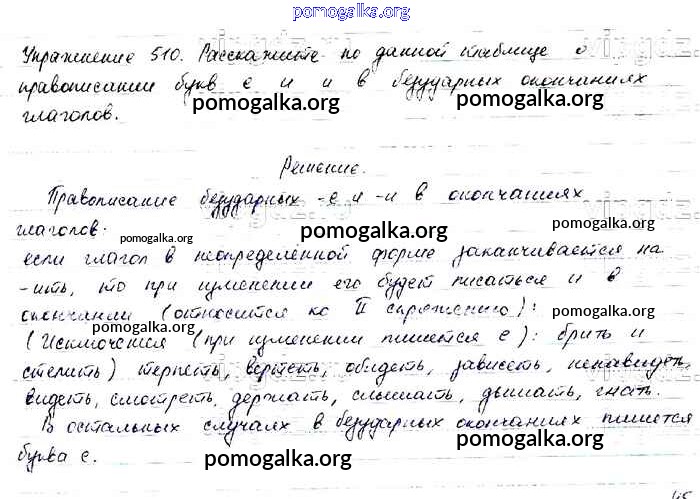 pomogalka.org
Упражнение 510. Расскажите по данной таблице о
правописании букв е и и в безударных окончаниях
pomogalka.org pomogalka.org
глаголов.
Решение.
Правописание безударных -е и -и в окончаниях
глаголов. pomogalka.org
pomogalka.org
если глагол в неопределённой форме заканчивается на
-ить, то при изменении его будет писаться и в
окончании (относится ко II спряжению):
pomogalka.org pomogalka.org
(Исключения (при изменении пишется е): брить и
стелить) терпеть, вертеть, обидеть, зависеть, ненавидеть,
видеть, смотреть, держать, слышать, дышать, гнать.
В остальных случаях в безударных окончаниях пишется
буква е. pomogalka.org pomogalka.org